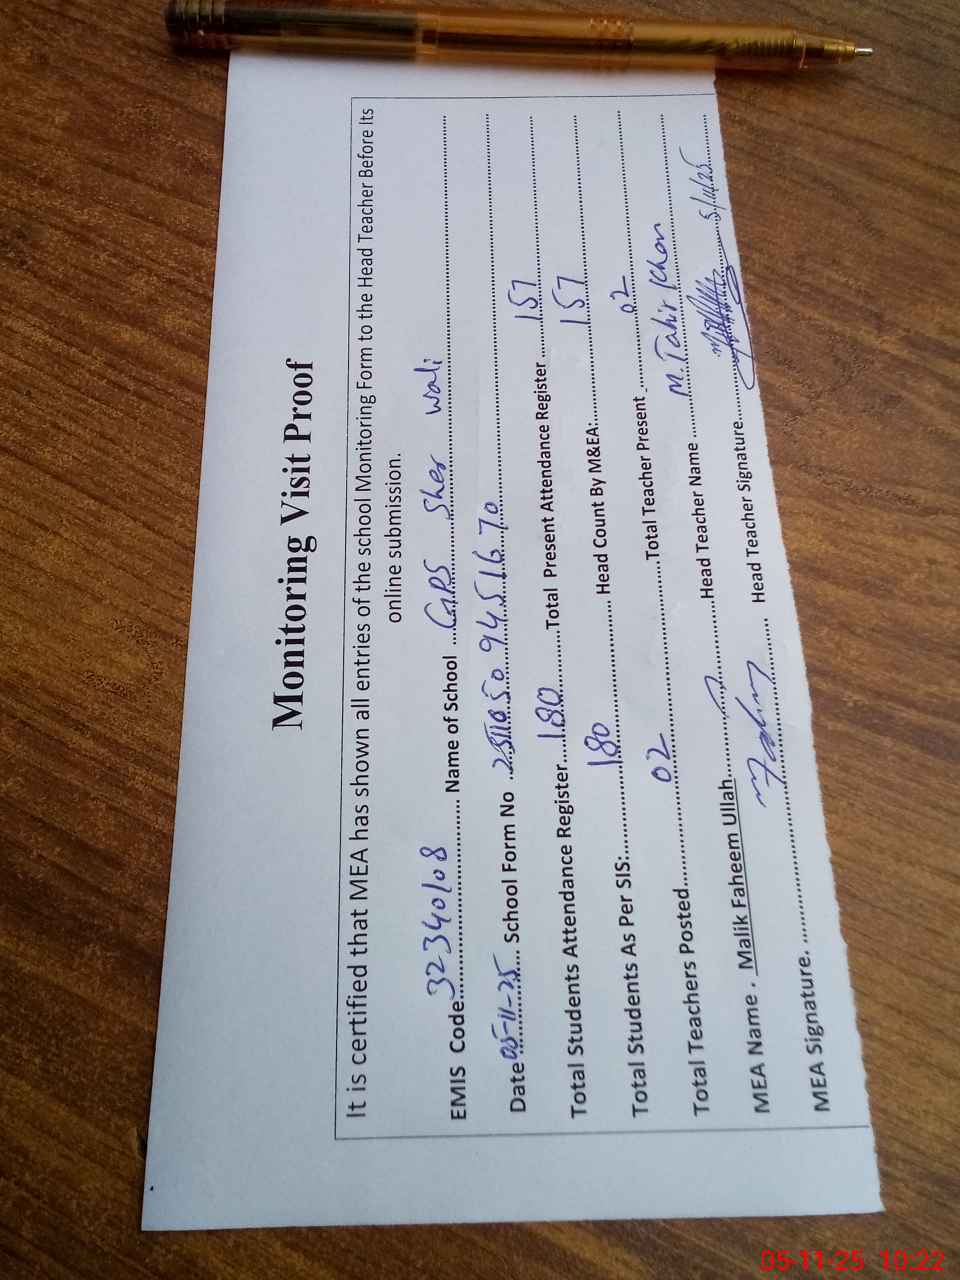 Monitoring Visit Proof
It is certified that MEA has shown all entries of the school Monitoring Form to the Head Teacher Before Its
online submission.
EMIS Code 32340108 Name of School GPS Sher Wali
Date 05-11-25 School Form No
Total Students Attendance Register 180 Total Present Attendance Register 157
Total Students As Per SIS: 180 Head Count By M&EA: 157
Total Teachers Posted 02 Total Teacher Present 02
MEA Name . Malik Faheem Ullah Head Teacher Name M. Tahir Khan
MEA Signature. Head Teacher Signature 5/11/25
05-11-25 10:22